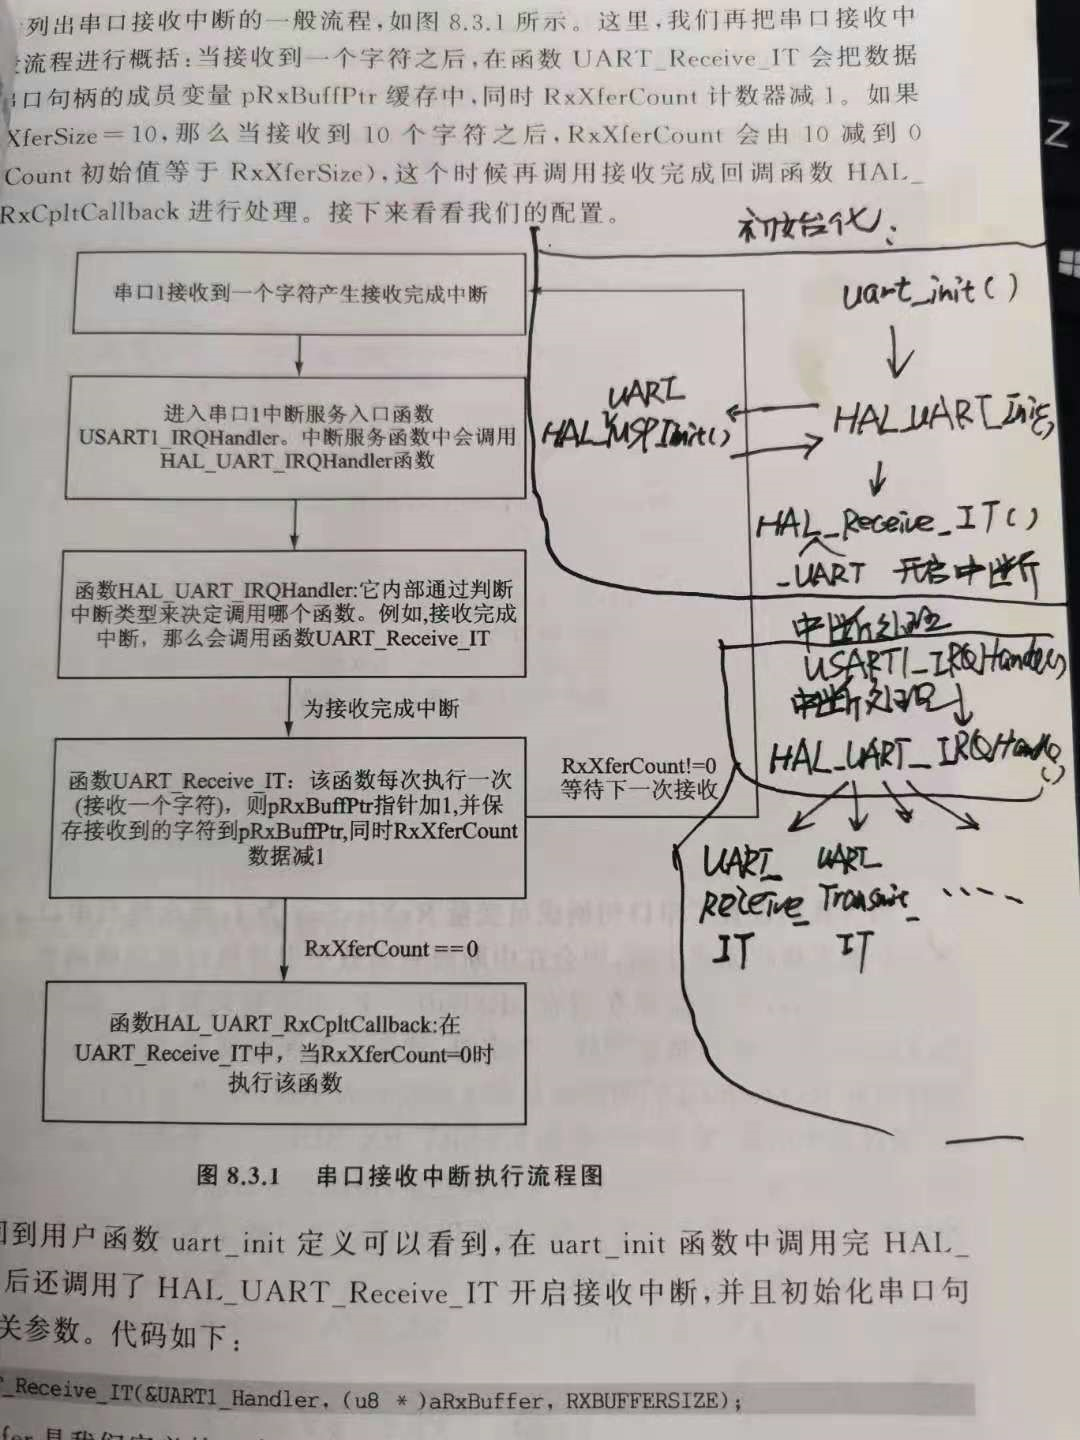 列出串口接收中断的一般流程,如图 8.3.1 所示。这里,我们再把串口接收中
流程进行概括:当接收到一个字符之后,在函数 UART_Receive_IT 会把数据
口句柄的成员变量 pRxBuffPtr 缓存中,同时 RxXferCount 计数器减 1。如果
XferSize=10,那么当接收到 10 个字符之后,RxXferCount 会由 10 减到 0
Count 初始值等于 RxXferSize),这个时候再调用接收完成回调函数 HAL_
RxCpltCallback 进行处理。接下来看看我们的配置。
串口1接收到一个字符产生接收完成中断
进入串口1中断服务入口函数
USART1_IRQHandler。中断服务函数中会调用
HAL_UART_IRQHandler函数
函数HAL_UART_IRQHandler:它内部通过判断
中断类型来决定调用哪个函数。例如,接收完成
中断，那么会调用函数UART_Receive_IT
为接收完成中断
函数UART_Receive_IT：该函数每次执行一次
(接收一个字符)，则pRxBuffPtr指针加1,并保
存接收到的字符到pRxBuffPtr,同时RxXferCount
数据减1
RxXferCount!=0
等待下一次接收
RxXferCount==0
函数HAL_UART_RxCpltCallback:在
UART_Receive_IT中，当RxXferCount=0时
执行该函数
初始化:
uart_init()
HAL_UART_Init()
UART
HAL_MSPInit()
HAL_Receive_IT()
_UART 开启中断
中断处理
USART1_IRQHandler()
中断处理
HAL_UART_IRQHandle()
UART_ UART_
Receive_ Transmit_ ....
IT IT
Z
图 8.3.1 串口接收中断执行流程图
回到用户函数 uart_init 定义可以看到,在 uart_init 函数中调用完 HAL_
后还调用了 HAL_UART_Receive_IT 开启接收中断,并且初始化串口句
关参数。代码如下:
_Receive_IT(&UART1_Handler, (u8 *)aRxBuffer, RXBUFFERSIZE);